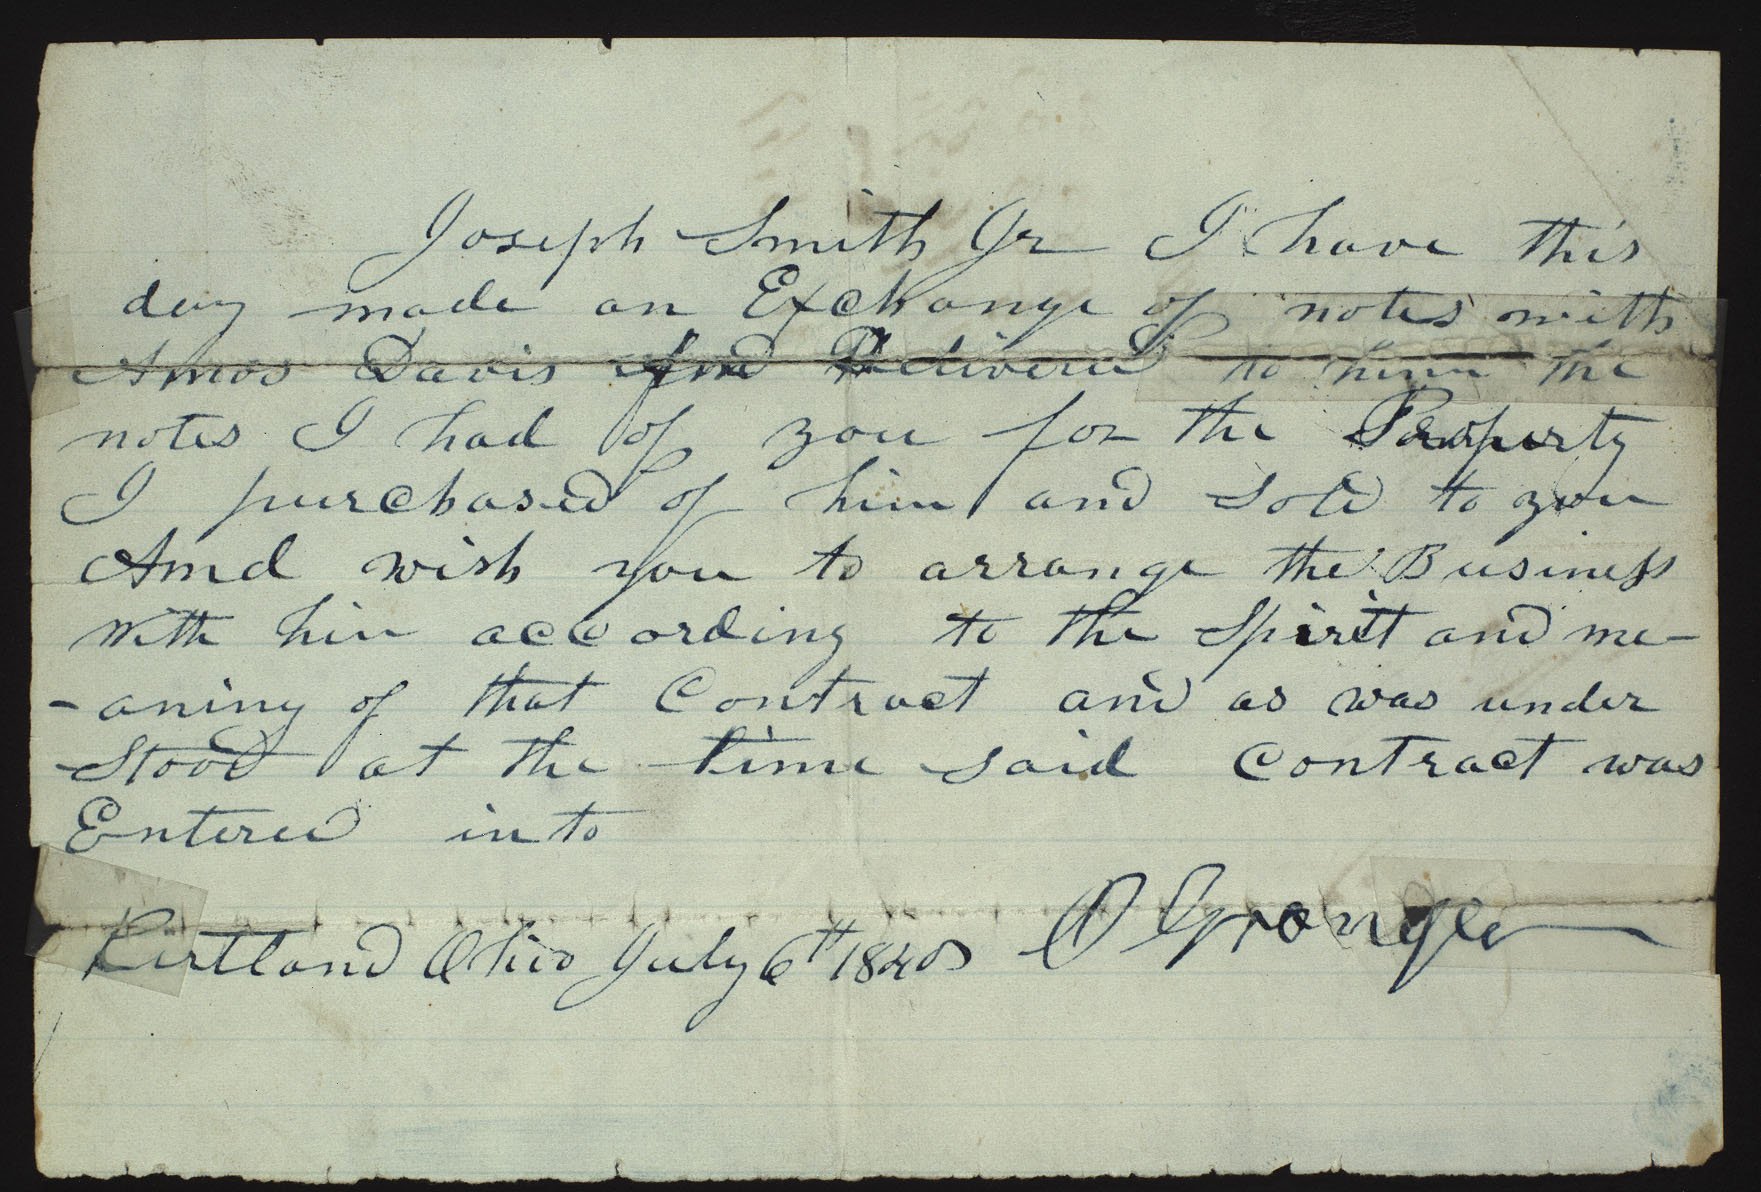 Joseph Smith Jr I have this
day made an Exchange of notes with
Amos Davis And Delivered to him the
notes I had of you for the Property
I purchased of him and Sold to you
And wish you to arrange the Business
with him according to the Spirit and me-
-aning of that Contract and as was under
Stood at the time said Contract was
Entered into
Kirtland Ohio July 6th 1840 O Granger